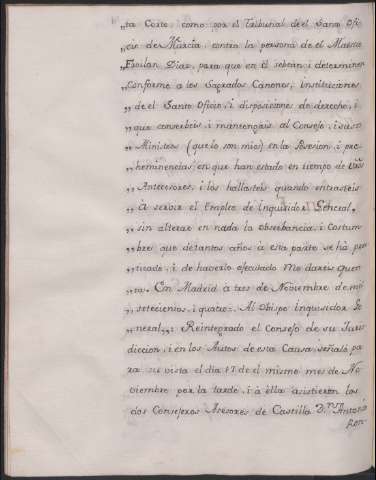 „ta Corte, como por el Tribunal de el Santo Ofi-
„cio de Murcia, contra la persona de el Maestro
„Froilan Diaz, para que en él se vean, i determinen
„Conforme a los Sagrados Canones, instituciones
„de el Santo Oficio, i disposiciones de derecho, i
„que conserbeis, i mantengais al Consejo, i sus
„Ministros (que lo son mios) en la Posesion, i pre-
„heminencias en que han estado en tiempo de
„Antecesores, i los hallasteis quando entrasteis
„à servir el Empleo de Inquisidor General,
„sin alterar en nada la Obserbancia, i Costum-
„bre que de tantos años à esta parte se há prac
„ticado, i de haverlo efectuado me dareis quen
„ta. En Madrid à tres de Noviembre de mil
„setecientos, i quatro. Al Obispo Inquisidor Ge
„neral„: Reintegrado el Consejo de su Juris
diccion, i en los Autos de esta Causa, señalò pa
ra su vista el dia 17 de el mismo mes de No
viembre por la tarde, i à ella asistieron los
dos Consejeros Asesores de Castilla D.n Antonio
Ron-